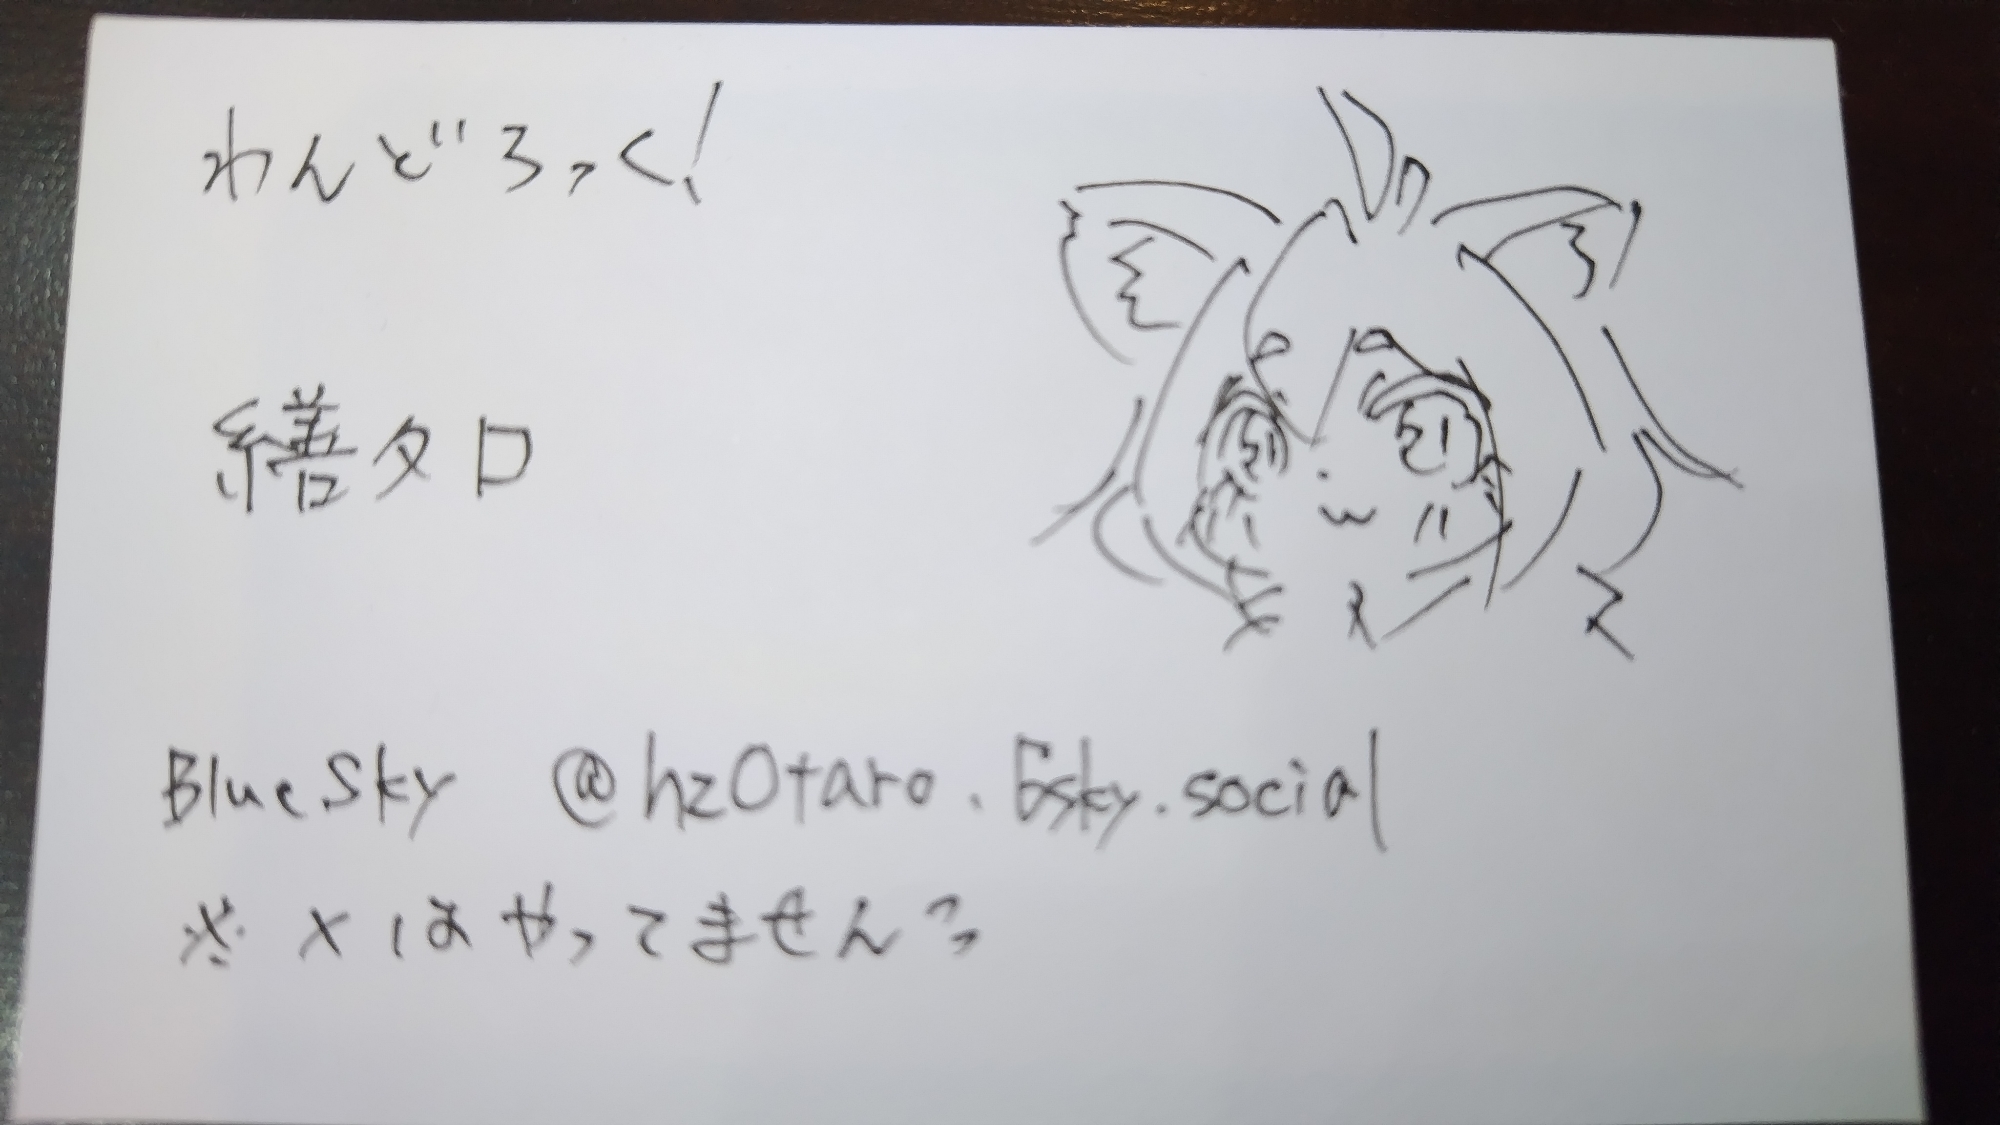 わんどろっく!
繕タロ
BlueSky @hz0taro.bsky.social
※ Xはやってません